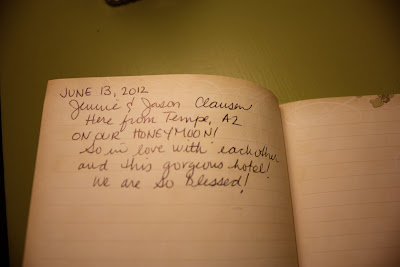 JUNE 13, 2012
Jennie & Jason Clausen
Here from Tempe, AZ
ON OUR HONEYMOON!
So in love with each other
and this gorgeous hotel!
We are so blessed!